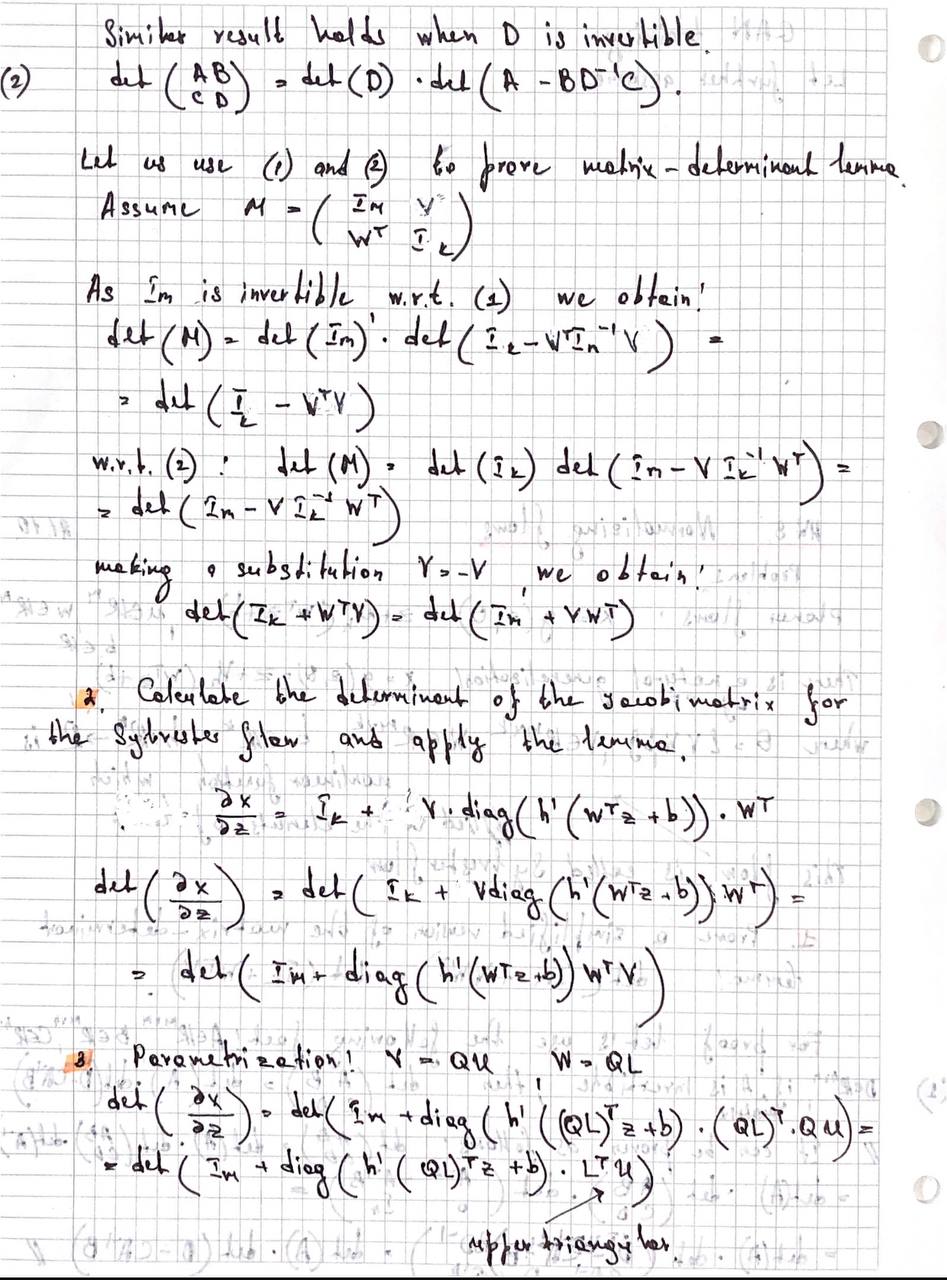 Similar result holds when D is invertible.
(2) det (A B C D) = det (D) · det (A - BD⁻¹C).
Let us use (1) and (2) to prove matrix-determinant lemma.
Assume M = (I_M V W^T I_k)
As I_m is invertible w.r.t. (1) we obtain:
det (M) = det (I_m)' · det (I_k - W^T I_m⁻¹ V) =
= det (I_k - W^T V)
w.r.t. (2): det (M) = det (I_k) det (I_m - V I_k⁻¹ W^T) =
= det (I_m - V I_k⁻¹ W^T)
making a substitution V = -V we obtain:
det (I_k + W^T V) = det (I_m + V W^T)
2. Calculate the determinant of the Jacobi matrix for
the Sylvester flow and apply the lemma.
∂x/∂z = I_k + V · diag (h' (W^T z + b)) · W^T
det (∂x/∂z) = det (I_k + V diag (h' (W^T z + b)) W^T) =
= det (I_m + diag (h' (W^T z + b)) W^T V)
3. Parametrization: V = QU W = QL
det (∂x/∂z) = det (I_m + diag (h' ((QL)^T z + b) · (QL)^T · QU) =
= det (I_m + diag (h' (QL)^T z + b) · L^T U)
upper triangular.